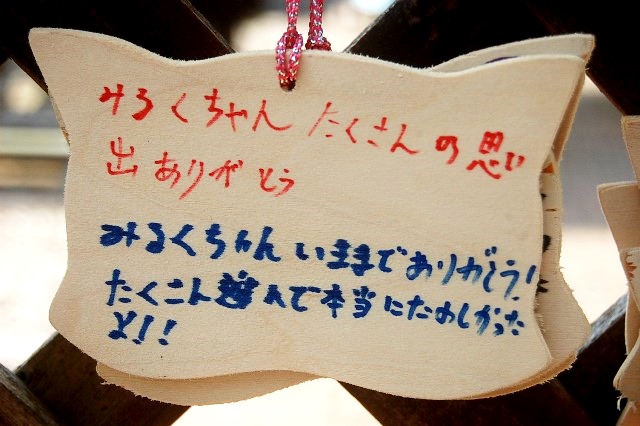 みるくちゃん たくさんの思い
出ありがとう
みるくちゃんいままでありがとう!
たくさん遊んで本当にたのしかった
よ!!